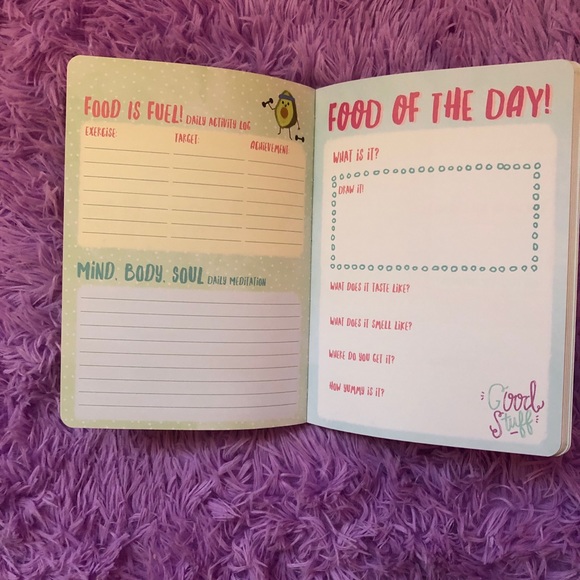 FOOD IS FUEL! DAILY ACTIVITY LOG
EXERCISE: TARGET: ACHIEVEMENT:
MIND, BODY, SOUL DAILY MEDITATION
FOOD OF THE DAY!
WHAT IS IT?
DRAW IT!
WHAT DOES IT TASTE LIKE?
WHAT DOES IT SMELL LIKE?
WHERE DO YOU GET IT?
HOW YUMMY IS IT?
Good
Stuff